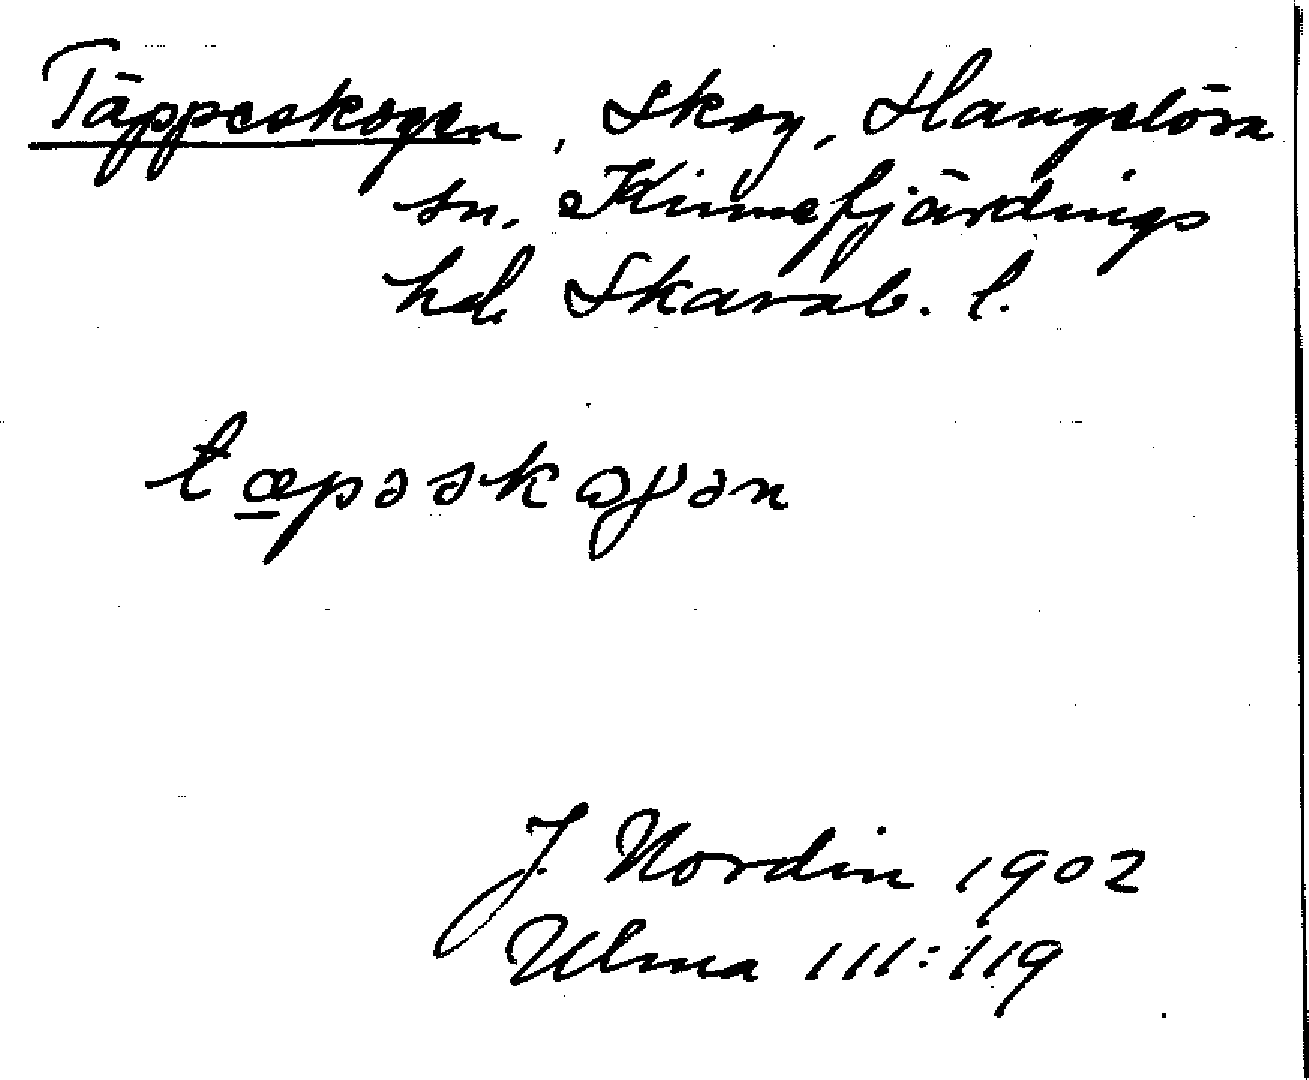 Täppeskogen, Skog, Hangelösa
sn. Kinnefjärdings
hd. Skarab. l.
tæpəskogən
J. Nordin 1902
Ulma 111:119